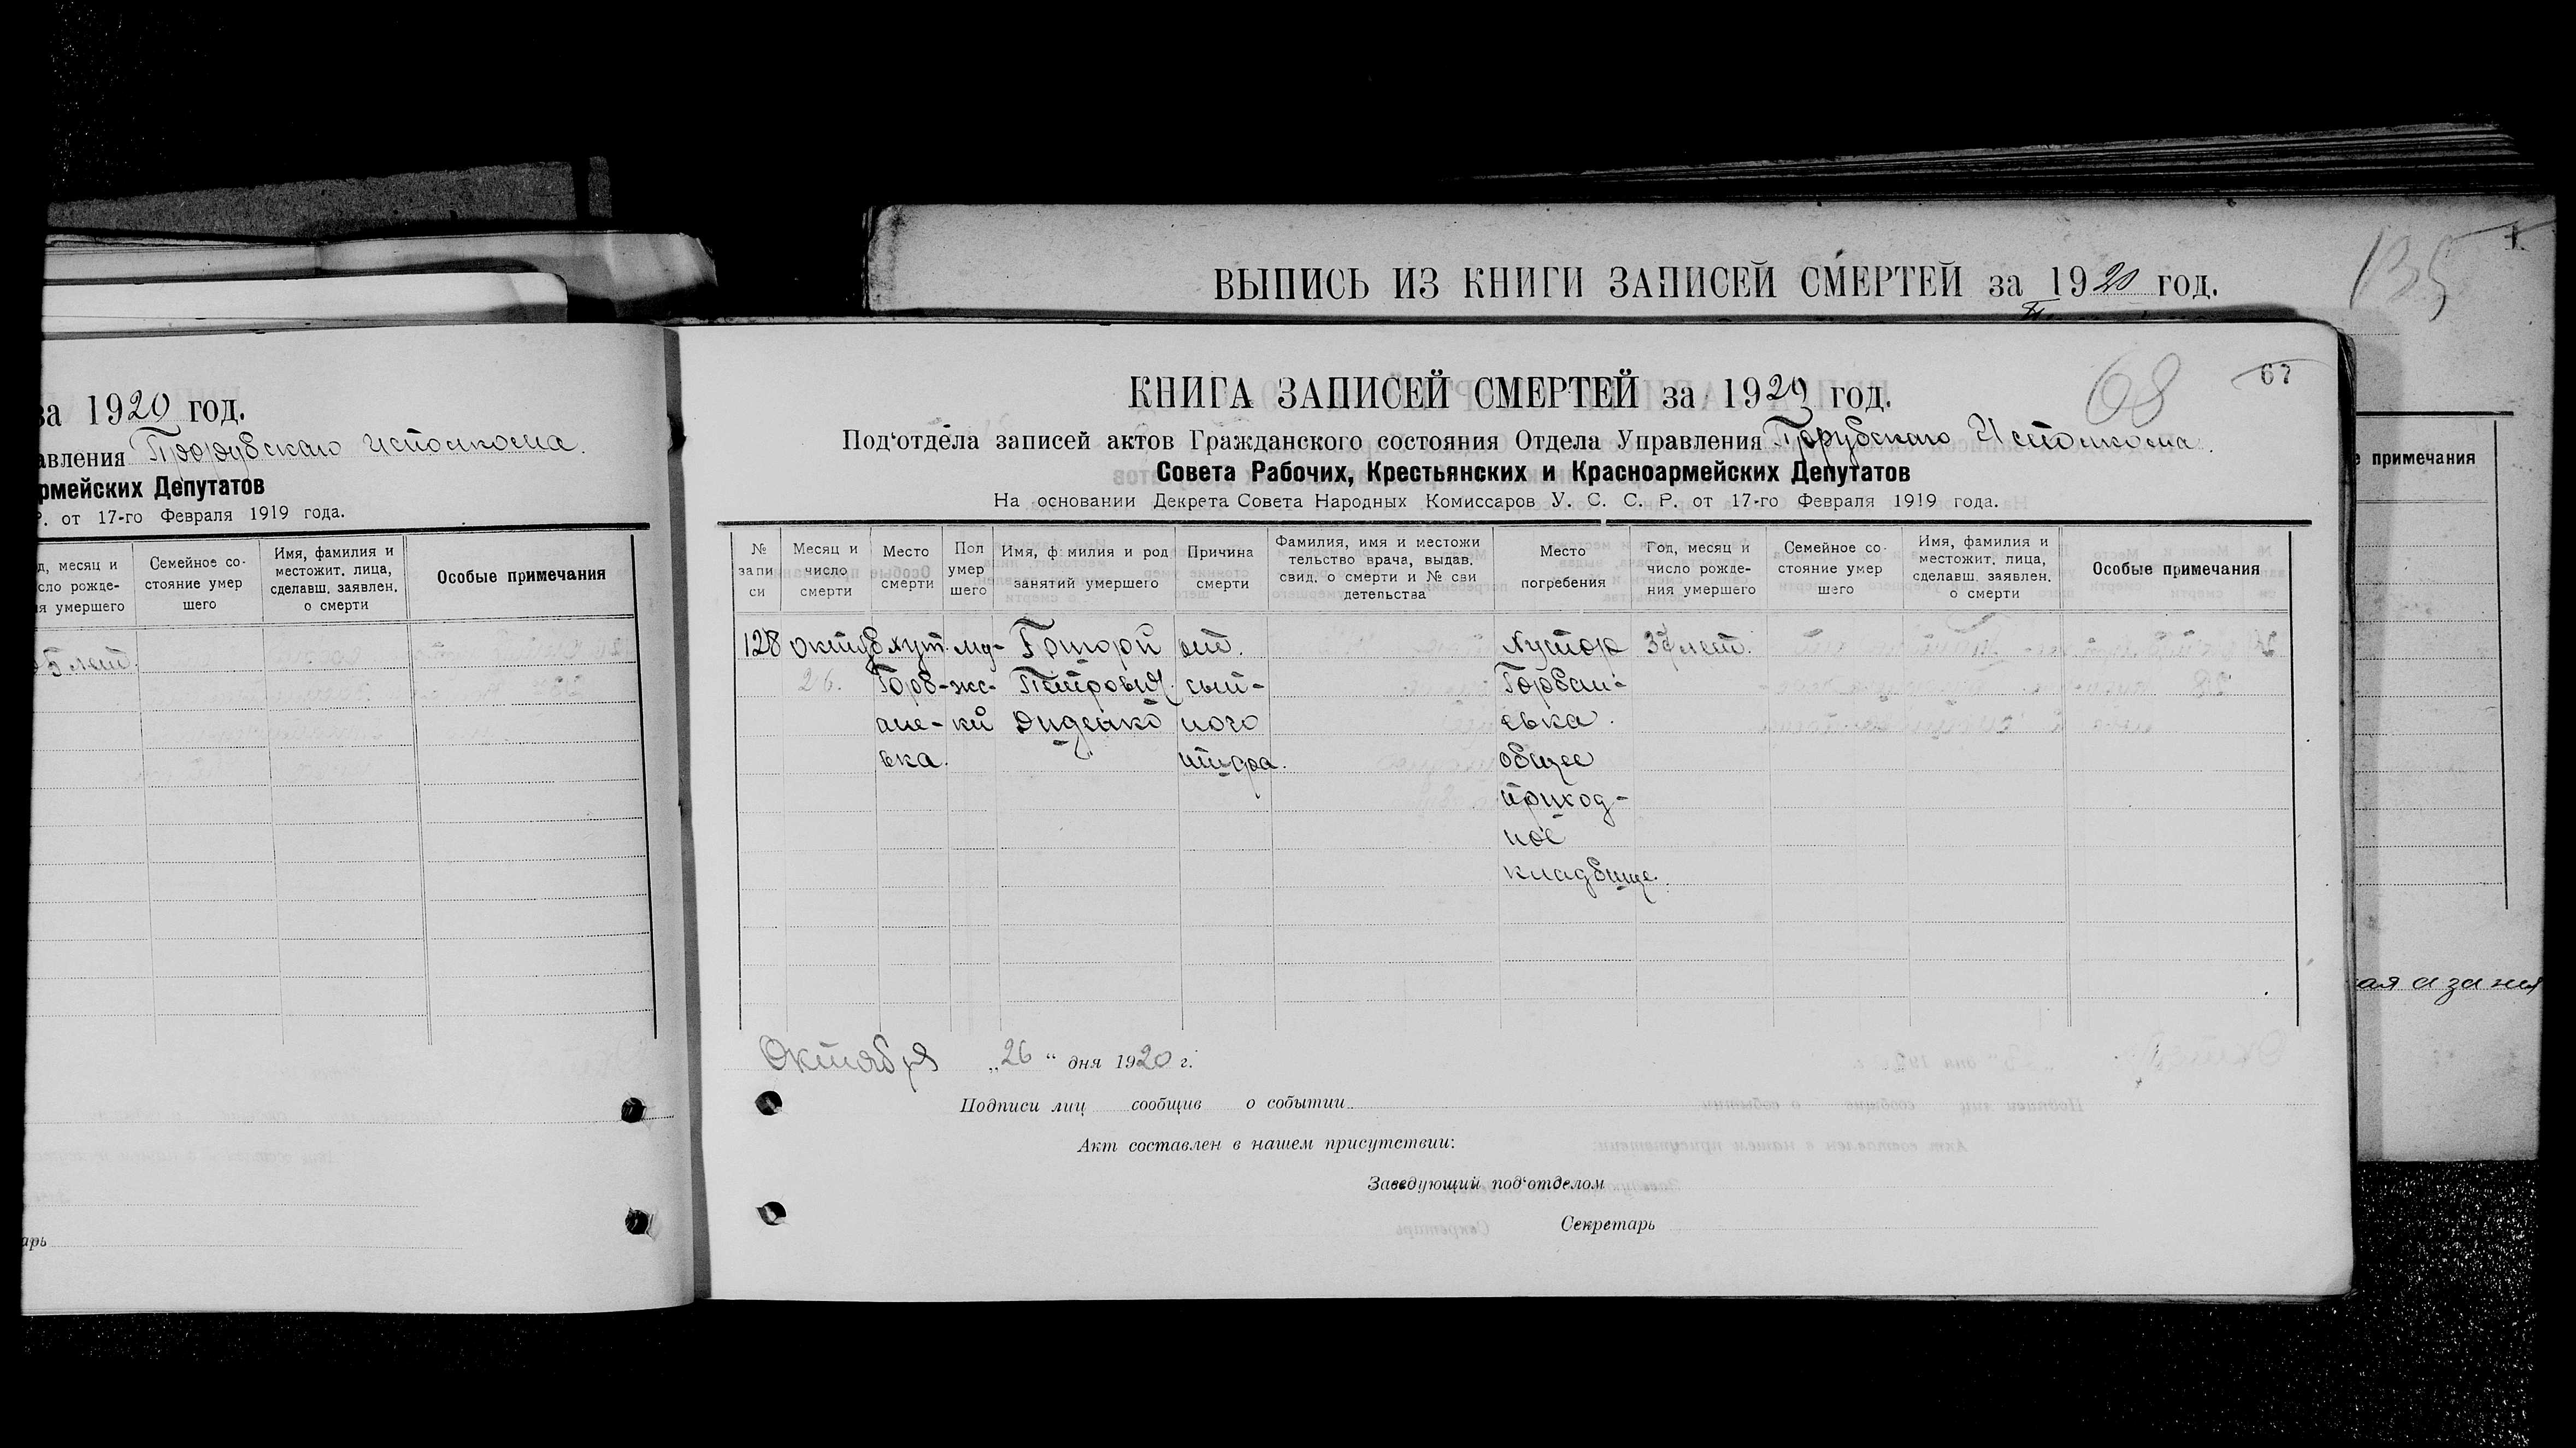 ВЫПИСЬ ИЗ КНИГИ ЗАПИСЕЙ СМЕРТЕЙ за 1920 год.
135
примечания
за 1920 год.
авления Исполкома.
рмейских Депутатов
Р. от 17-го Февраля 1919 года.
д, месяц и
сло рожде-
я умершего
Семейное со-
стояние умер
шего
Имя, фамилия и
местожит. лица,
сделавш. заявлен.
о смерти
Особые примечания
5 лет.
арь
КНИГА ЗАПИСЕЙ СМЕРТЕЙ за 1920 год.
68
67
Под‘отдела записей актов Гражданского состояния Отдела Управления Исполкома.
Совета Рабочих, Крестьянских и Красноармейских Депутатов
На основании Декрета Совета Народных Комиссаров У. С. С. Р. от 17-го Февраля 1919 года.
№
запи
си
Месяц и
число
смерти
Место
смерти
Пол
умер
шего
Имя, ф милия и род
занятий умершего
Причина
смерти
Фамилия, имя и местожи
тельство врача, выдав.
свид. о смерти и № сви
детельства
Место
погребения
Год, месяц и
число рожде-
ния умершего
Семейное со-
стояние умер
шего
Имя, фамилия и
местожит. лица,
сделавш. заявлен.
о смерти
Особые примечания
128 Октяб хут. му- Григорй от. Хутор 37 лет.
26. Горб- жс- Петрович сып- Горбан-
ане- кй Диденко ного евка.
вка. тифа. общее
приход-
ное
кладбище.
Октября „26“ дня 1920 г.
Подписи лиц сообщив о событии
Акт составлен в нашем присутствии:
Заведующий под‘отделом
Секретарь